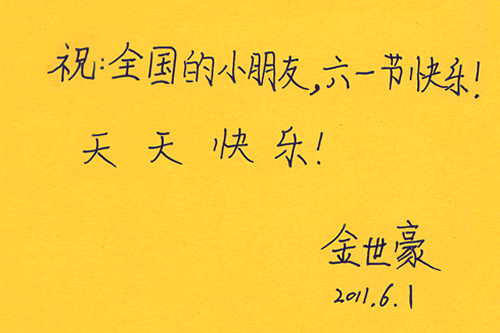 祝:全国的小朋友,六一节快乐!
天天快乐!
金世豪
2011.6.1